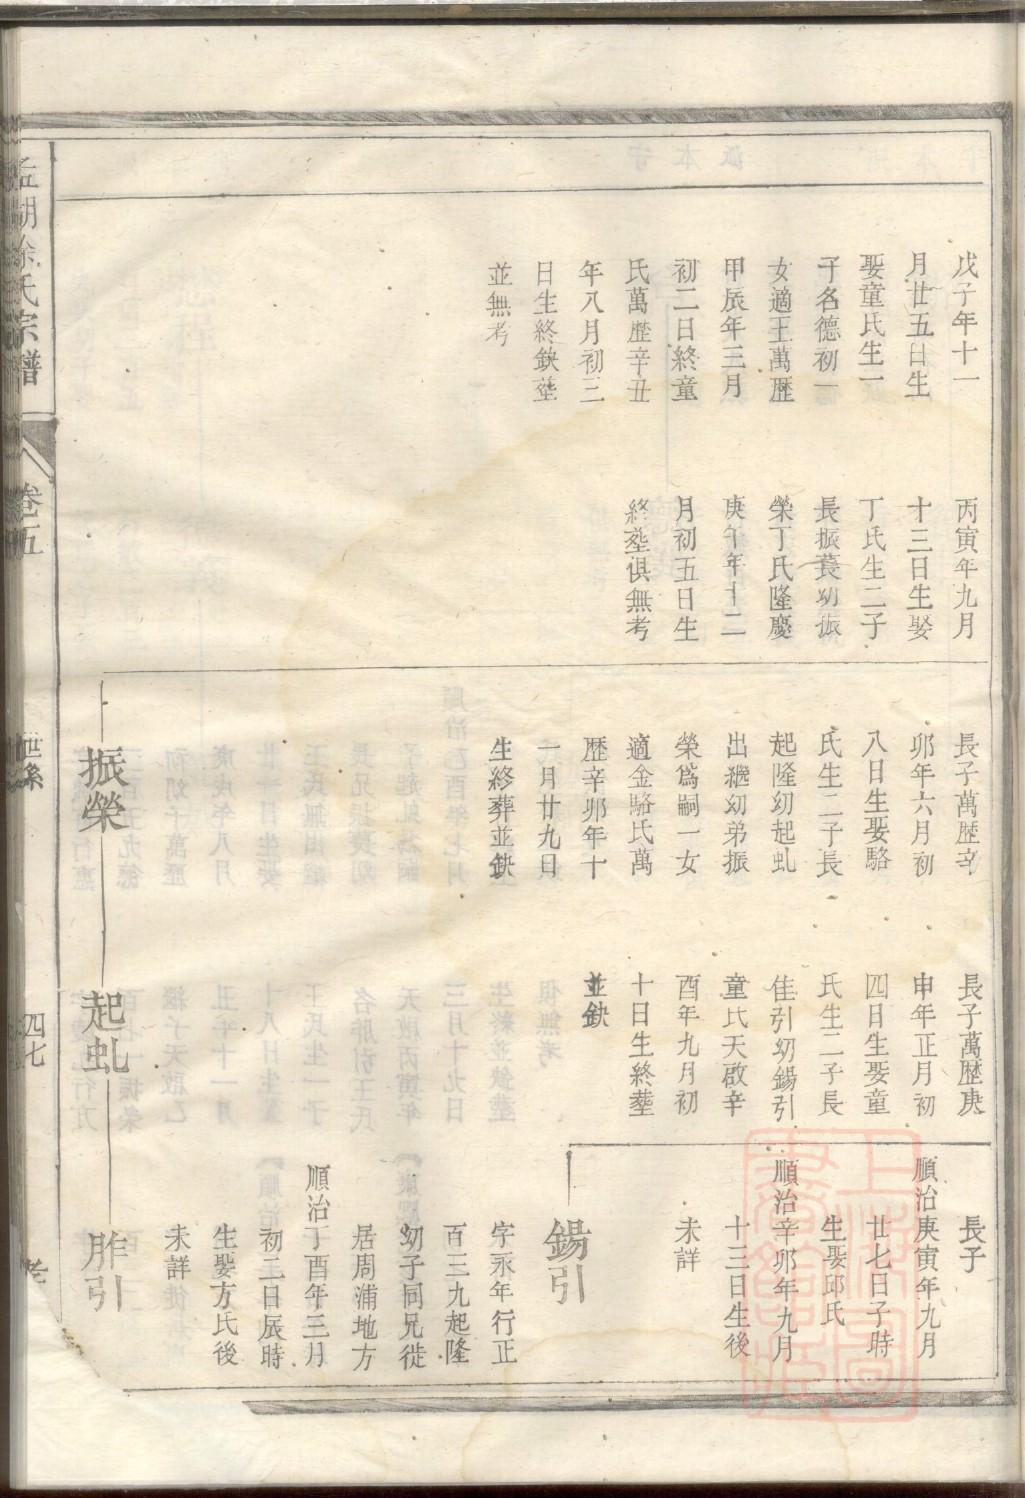 戊子年十一
月廿五日生
娶童氏生一
子名德初一
女適王萬歷
甲辰年三月
初二日終童
氏萬歷辛丑
年八月初三
日生終缺塟
並無考
丙寅年九月
十三日生娶
丁氏生二子
長振養幼振
榮丁氏隆慶
庚午年十二
月初五日生
終塟俱無考
長子萬歷辛
卯年六月初
八日生娶駱
氏生二子長
起隆幼起虬
出繼幼弟振
榮爲嗣一女
適金駱氏萬
歷辛卯年十
一月廿九日
生終葬並缺
長子萬歷庚
申年正月初
四日生娶童
氏生二子長
佳引幼錫引
童氏天啟辛
酉年九月初
十日生終塟
並缺
長子
順治庚寅年九月
廿七日子時
生娶邱氏
順治辛卯年九月
十三日生後
未詳
錫引
字永年行正
百三九起隆
幼子同兄徙
居周浦地方
順治丁酉年三月
初二日辰時
生娶方氏後
未詳
振榮
起虬
胙引
孟湖徐氏宗譜
卷五
世系
四七